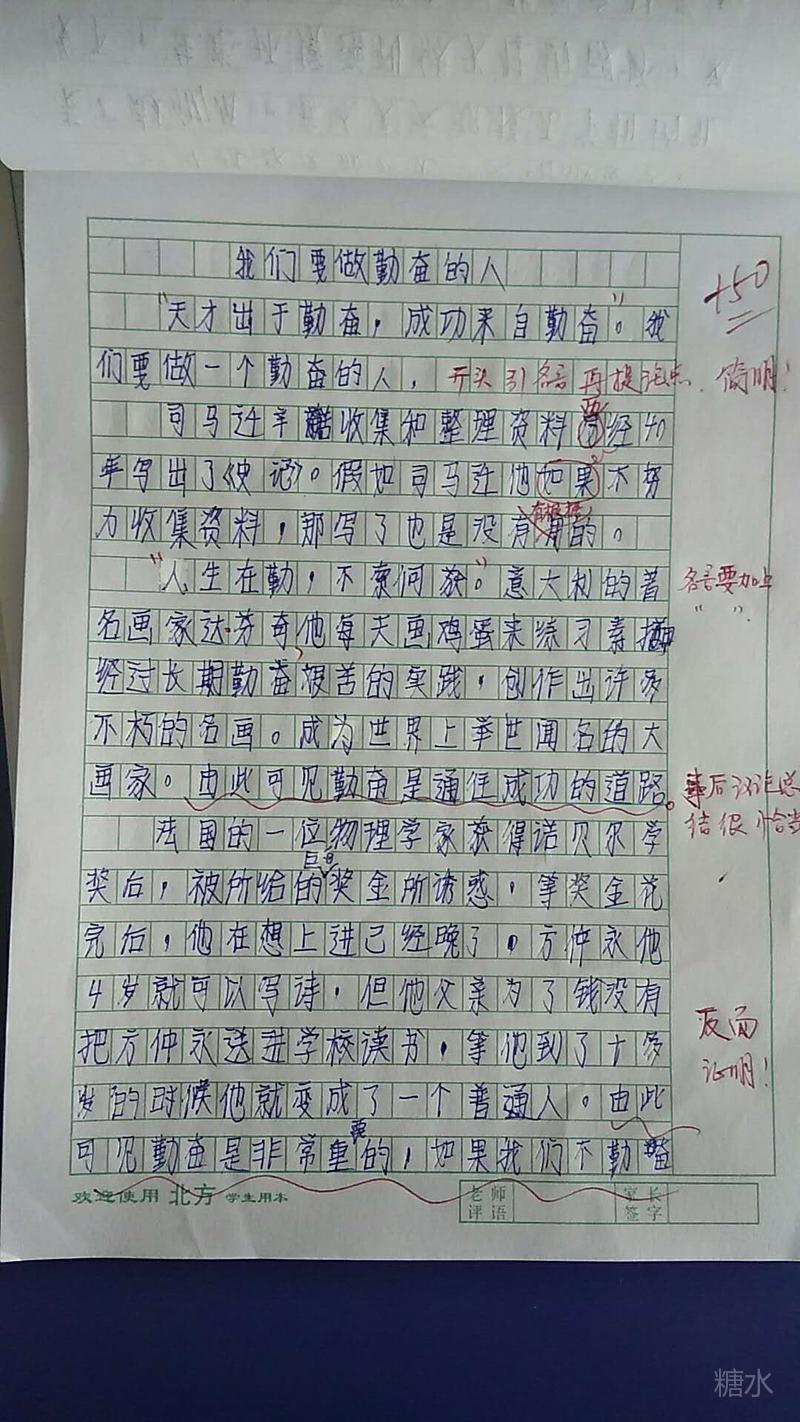 我们要做勤奋的人
+50
"天才出于勤奋，成功来自勤奋"。我
们要做一个勤奋的人，
开头引名言再提论点，简明！
司马迁辛 收集和整理资料 经40
要
年写出了《史记》。假如司马迁他如果不努
力收集资料，那写了也是没有 的。
有根据
"人生在勤，不索何获"。意大利的著
名言要加上
" "．
名画家达·芬奇他每天画鸡蛋来练习素描
经过长期勤奋艰苦的实践，创作出许多
不朽的名画。成为世界上举世闻名的大
画家。由此可见勤奋是通往成功的道路。
事后议论总
结很恰当
法国的一位物理学家获得诺贝尔学
巨额
奖后，被所给的奖金所诱惑，等奖金花
完后，他在想上进已经晚了。方仲永他
4岁就可以写诗，但他父亲为了钱没有
把方仲永送进学校读书，等他到了十多
反面
证明！
岁的时候他就变成了一个普通人。由此
可见勤奋是非常重要的，如果我们不勤奋
欢迎使用 北方 学生用本
老师评语
家长签字
糖水